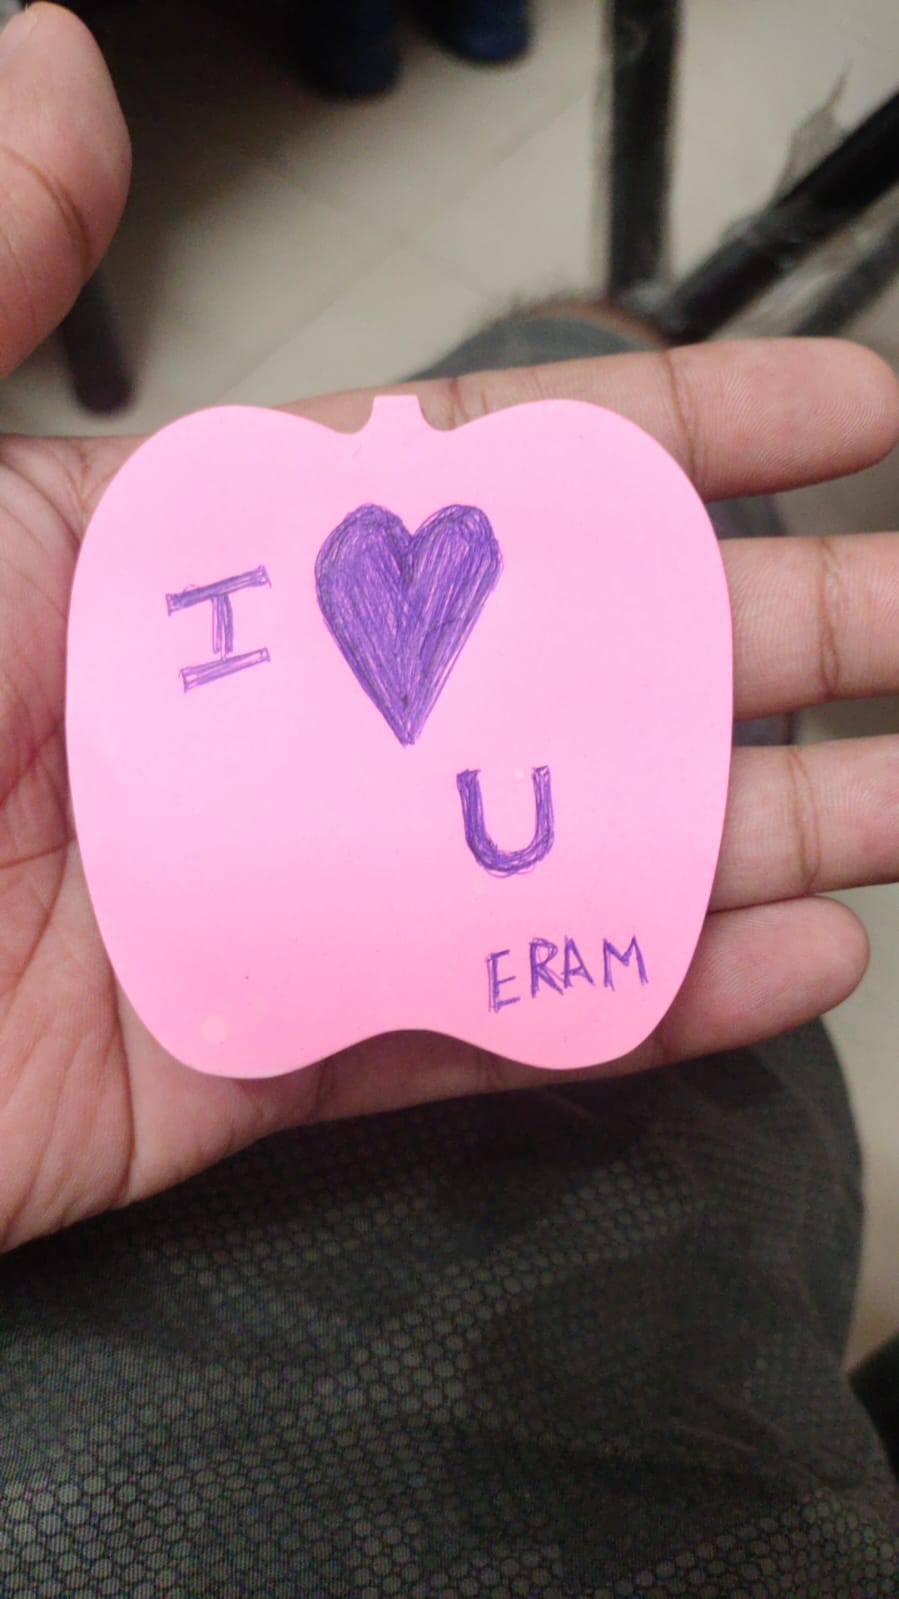 I ♥
U
ERAM